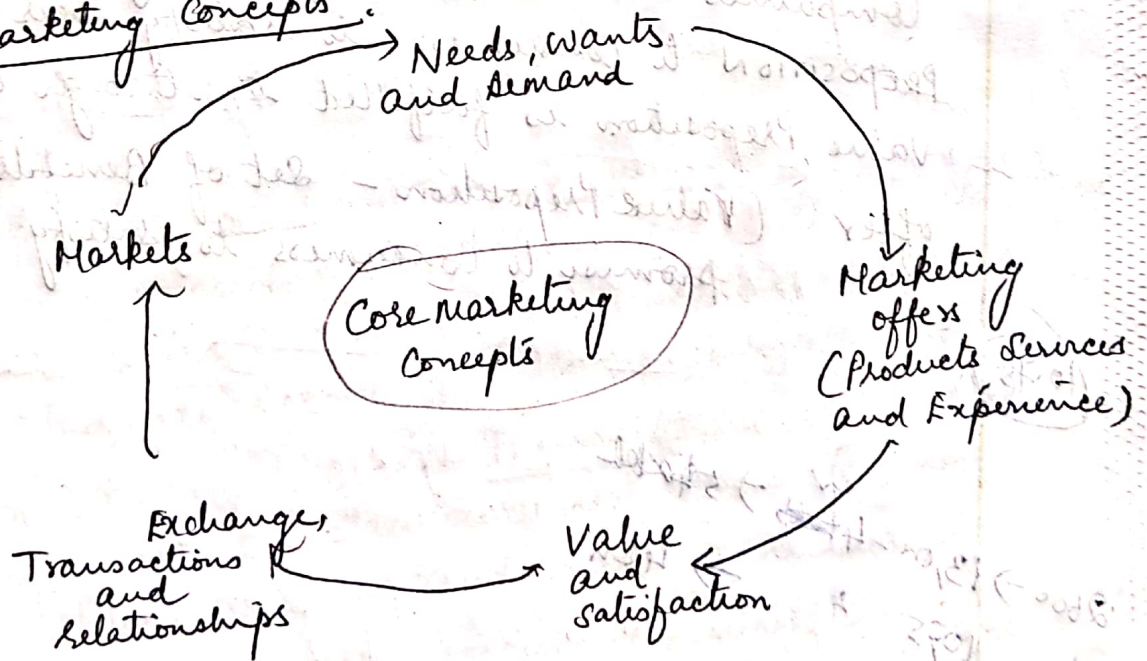 Marketing Concepts.
Needs, wants
and Demand
Markets
Core Marketing
Concepts
Marketing
offers
(Products Services
and Experience)
Exchange,
Transactions
and
relationships
Value
and
satisfaction